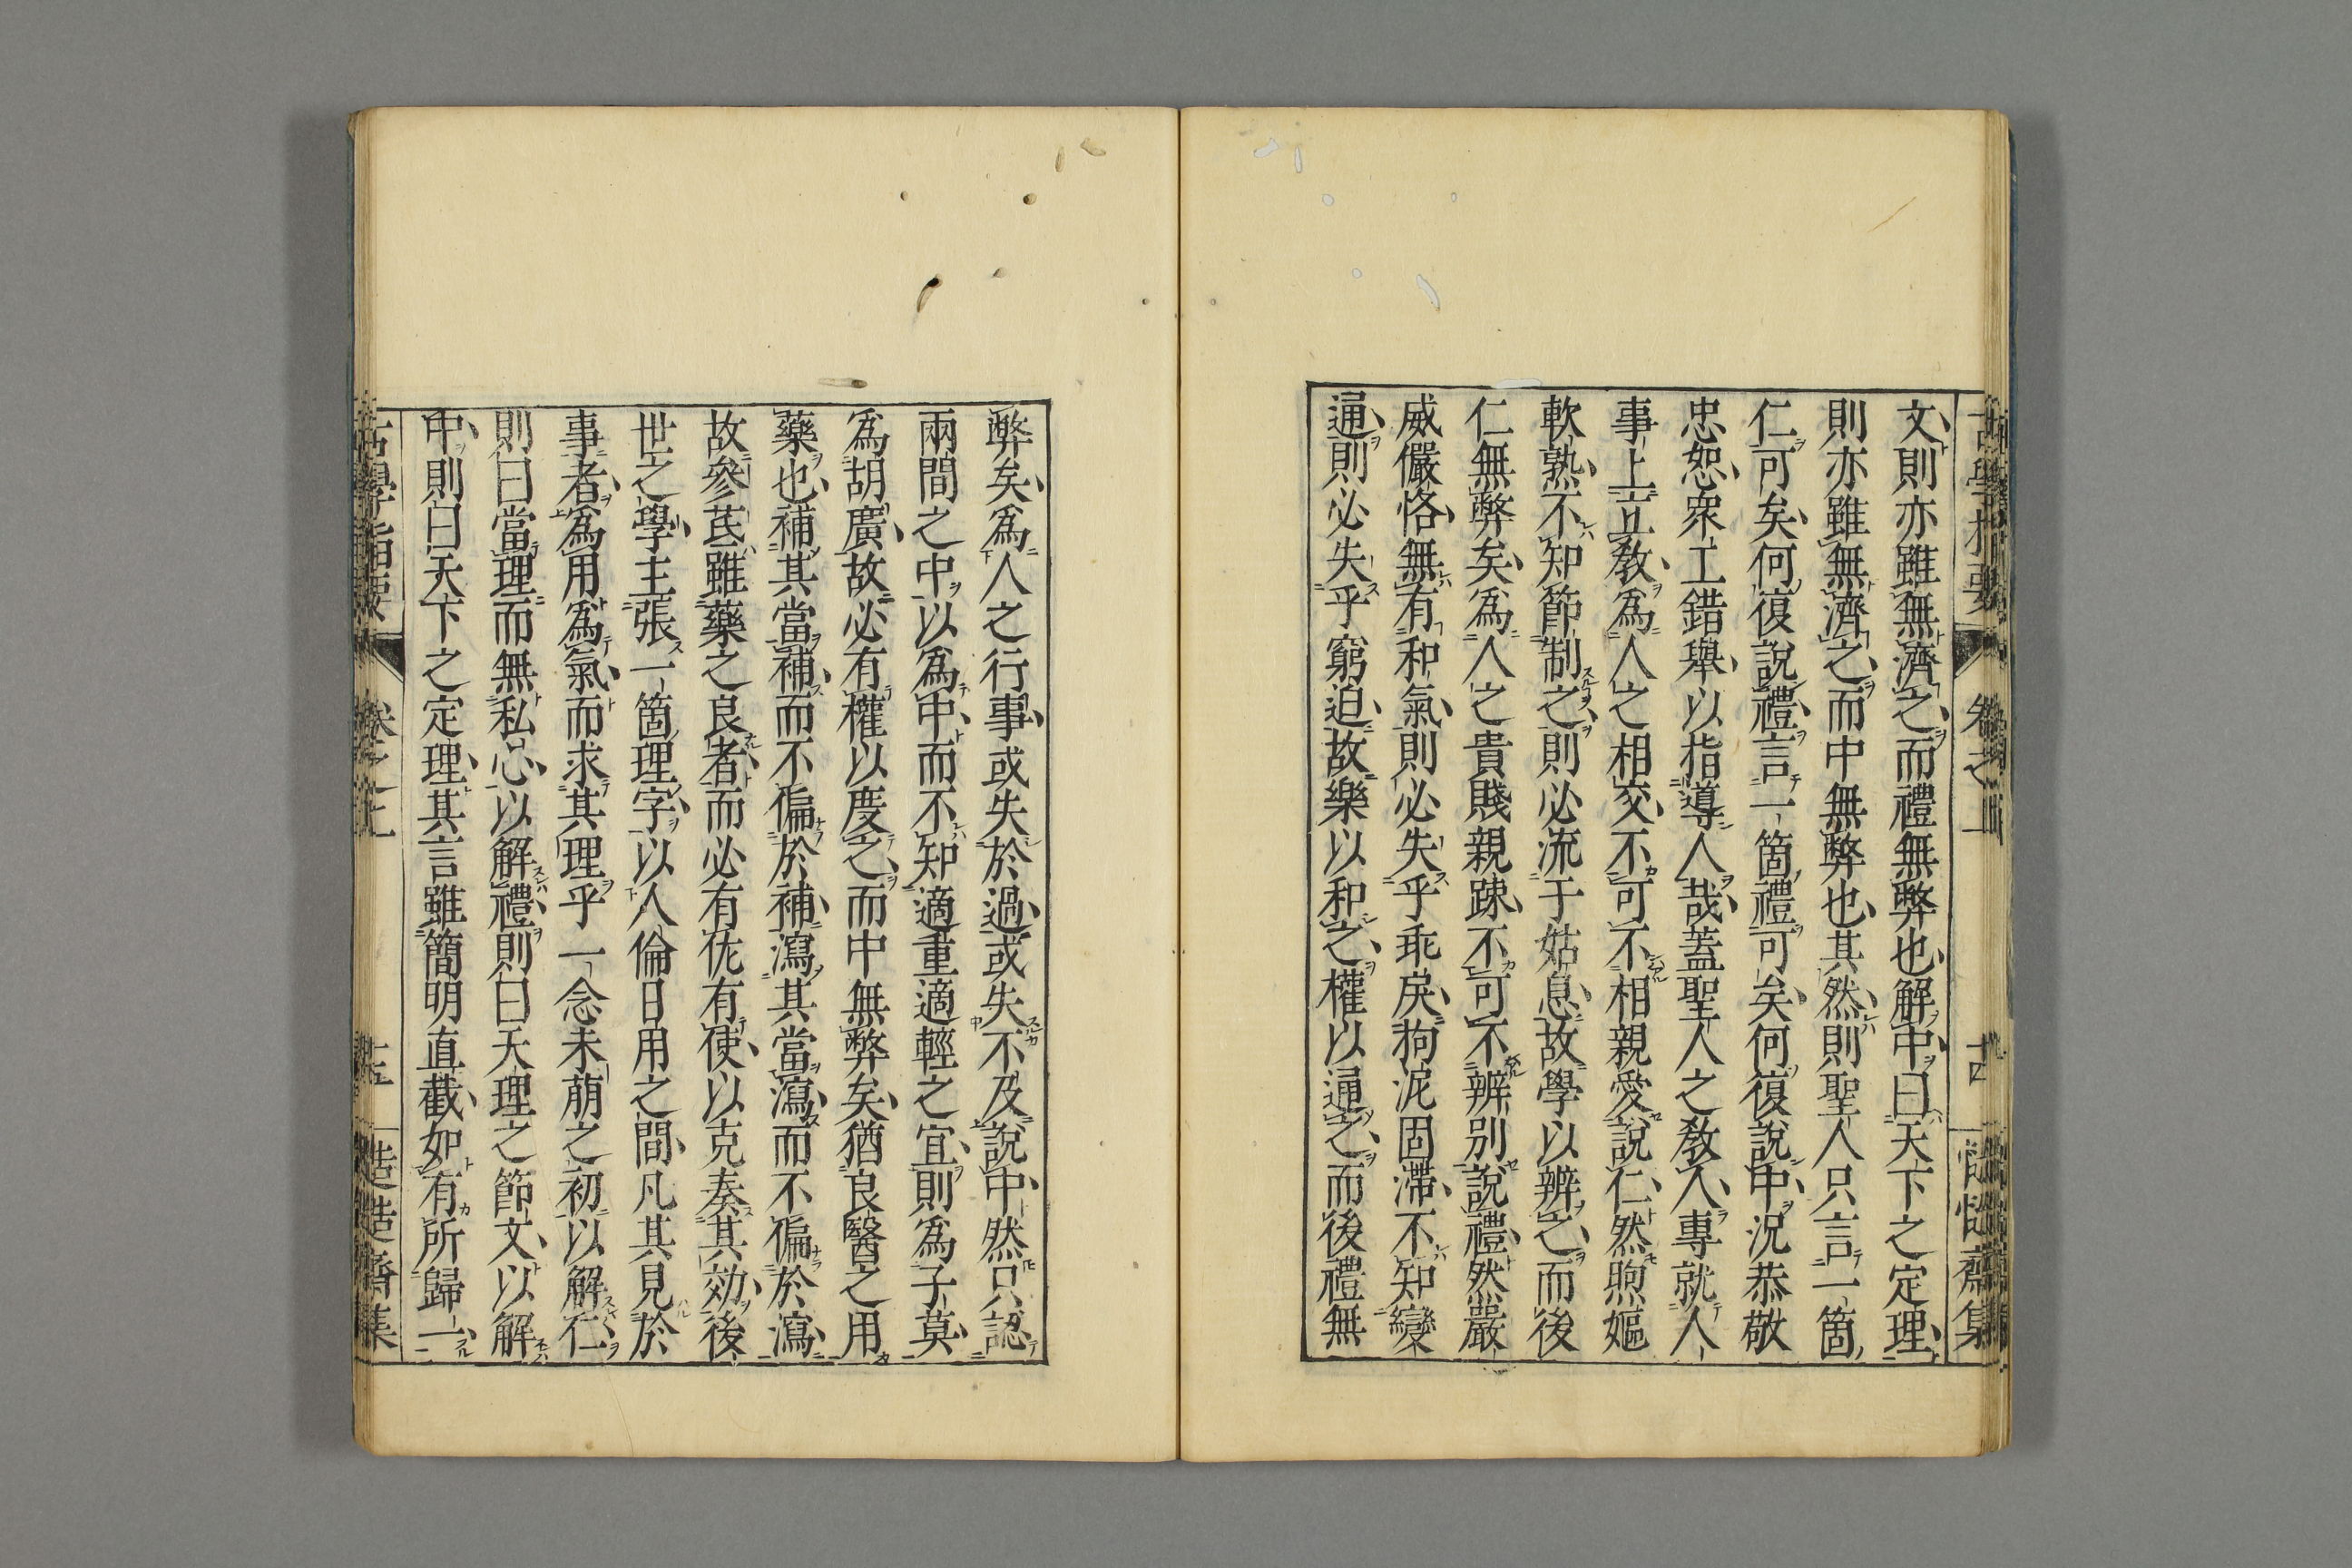 文則亦雖無濟之而禮無弊也解中曰天下之定理
則亦雖無濟之而中無弊也其然則聖人只言一箇
仁可矣何復說禮言一箇禮可矣何復說中況恭敬
忠恕衆工錯舉以指導人哉蓋聖人之教人專就人
事上立教爲人之相交不可不相親愛說仁然煦嫗
軟熟不知節制之則必流于姑息故學以辨之而後
仁無弊矣爲人之貴賤親踈不可不辨別說禮然嚴
威儼恪無有和氣則必失乎乖戾拘泥固滯不知變
通則必失乎窮迫故樂以和之權以通之而後禮無
弊矣爲人之行事或失於過或失不及說中然只認
兩間之中以爲中而不知適重適輕之宜則爲子莫
爲胡廣故必有權以度之而中無弊矣猶良醫之用
藥也補其當補而不偏於補瀉其當瀉而不偏於瀉
故參芪雖藥之良者而必有佐有使以克奏其効後
世之學主張一箇理字以人倫日用之間凡其見於
事者爲用爲氣而求其理乎一念未萠之初以解仁
則曰當理而無私心以解禮則曰天理之節文以解
中則曰天下之定理其言雖簡明直截如有所歸一
古學指要 卷之上 十五 慥慥齋集